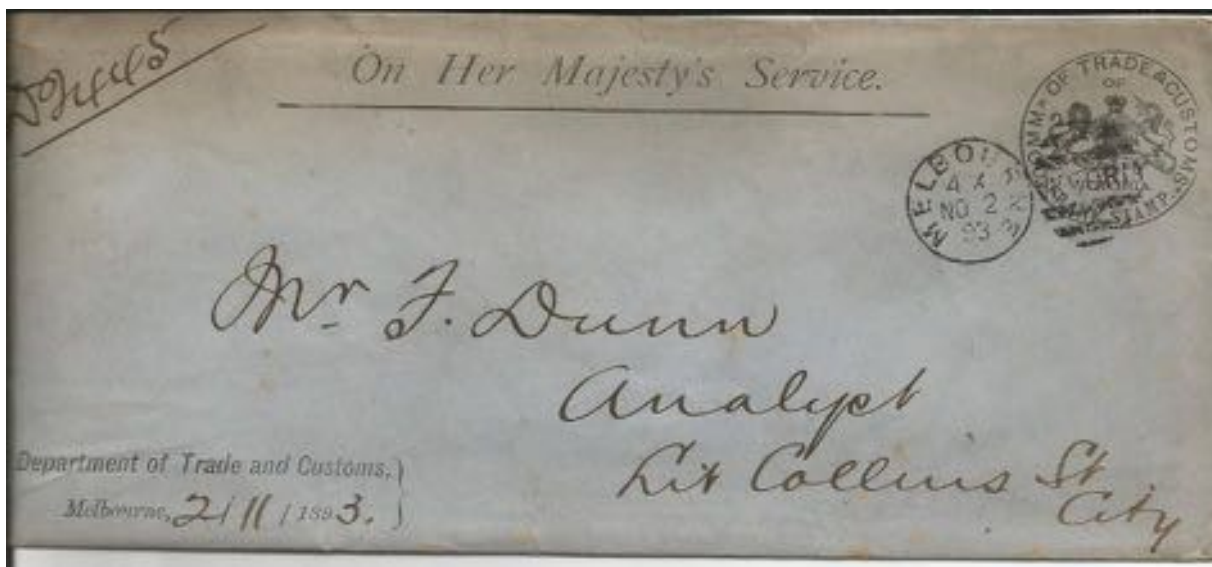 On Her Majesty's Service.
COMMR OF TRADE & CUSTOMS
OF
STAMP
MELBOU
4 A
NO 2
93
Mr F. Dunn
Analyst
Lit Collins St
City
Department of Trade and Customs,
Melbourne, 2/11/1893.